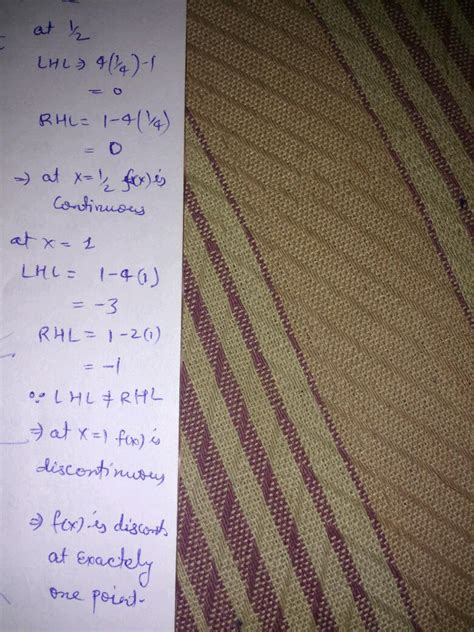 at 1/2
LHL ⇒ 4(1/4)-1
= 0
RHL = 1-4(1/4)
= 0
⇒ at x=1/2 f(x) is
continuous
at x = 1
LHL = 1-4(1)
= -3
RHL = 1-2(1)
= -1
∵ LHL ≠ RHL
⇒ at x=1 f(x) is
discontinuous
⇒ f(x) is discont
at exactely
one point.